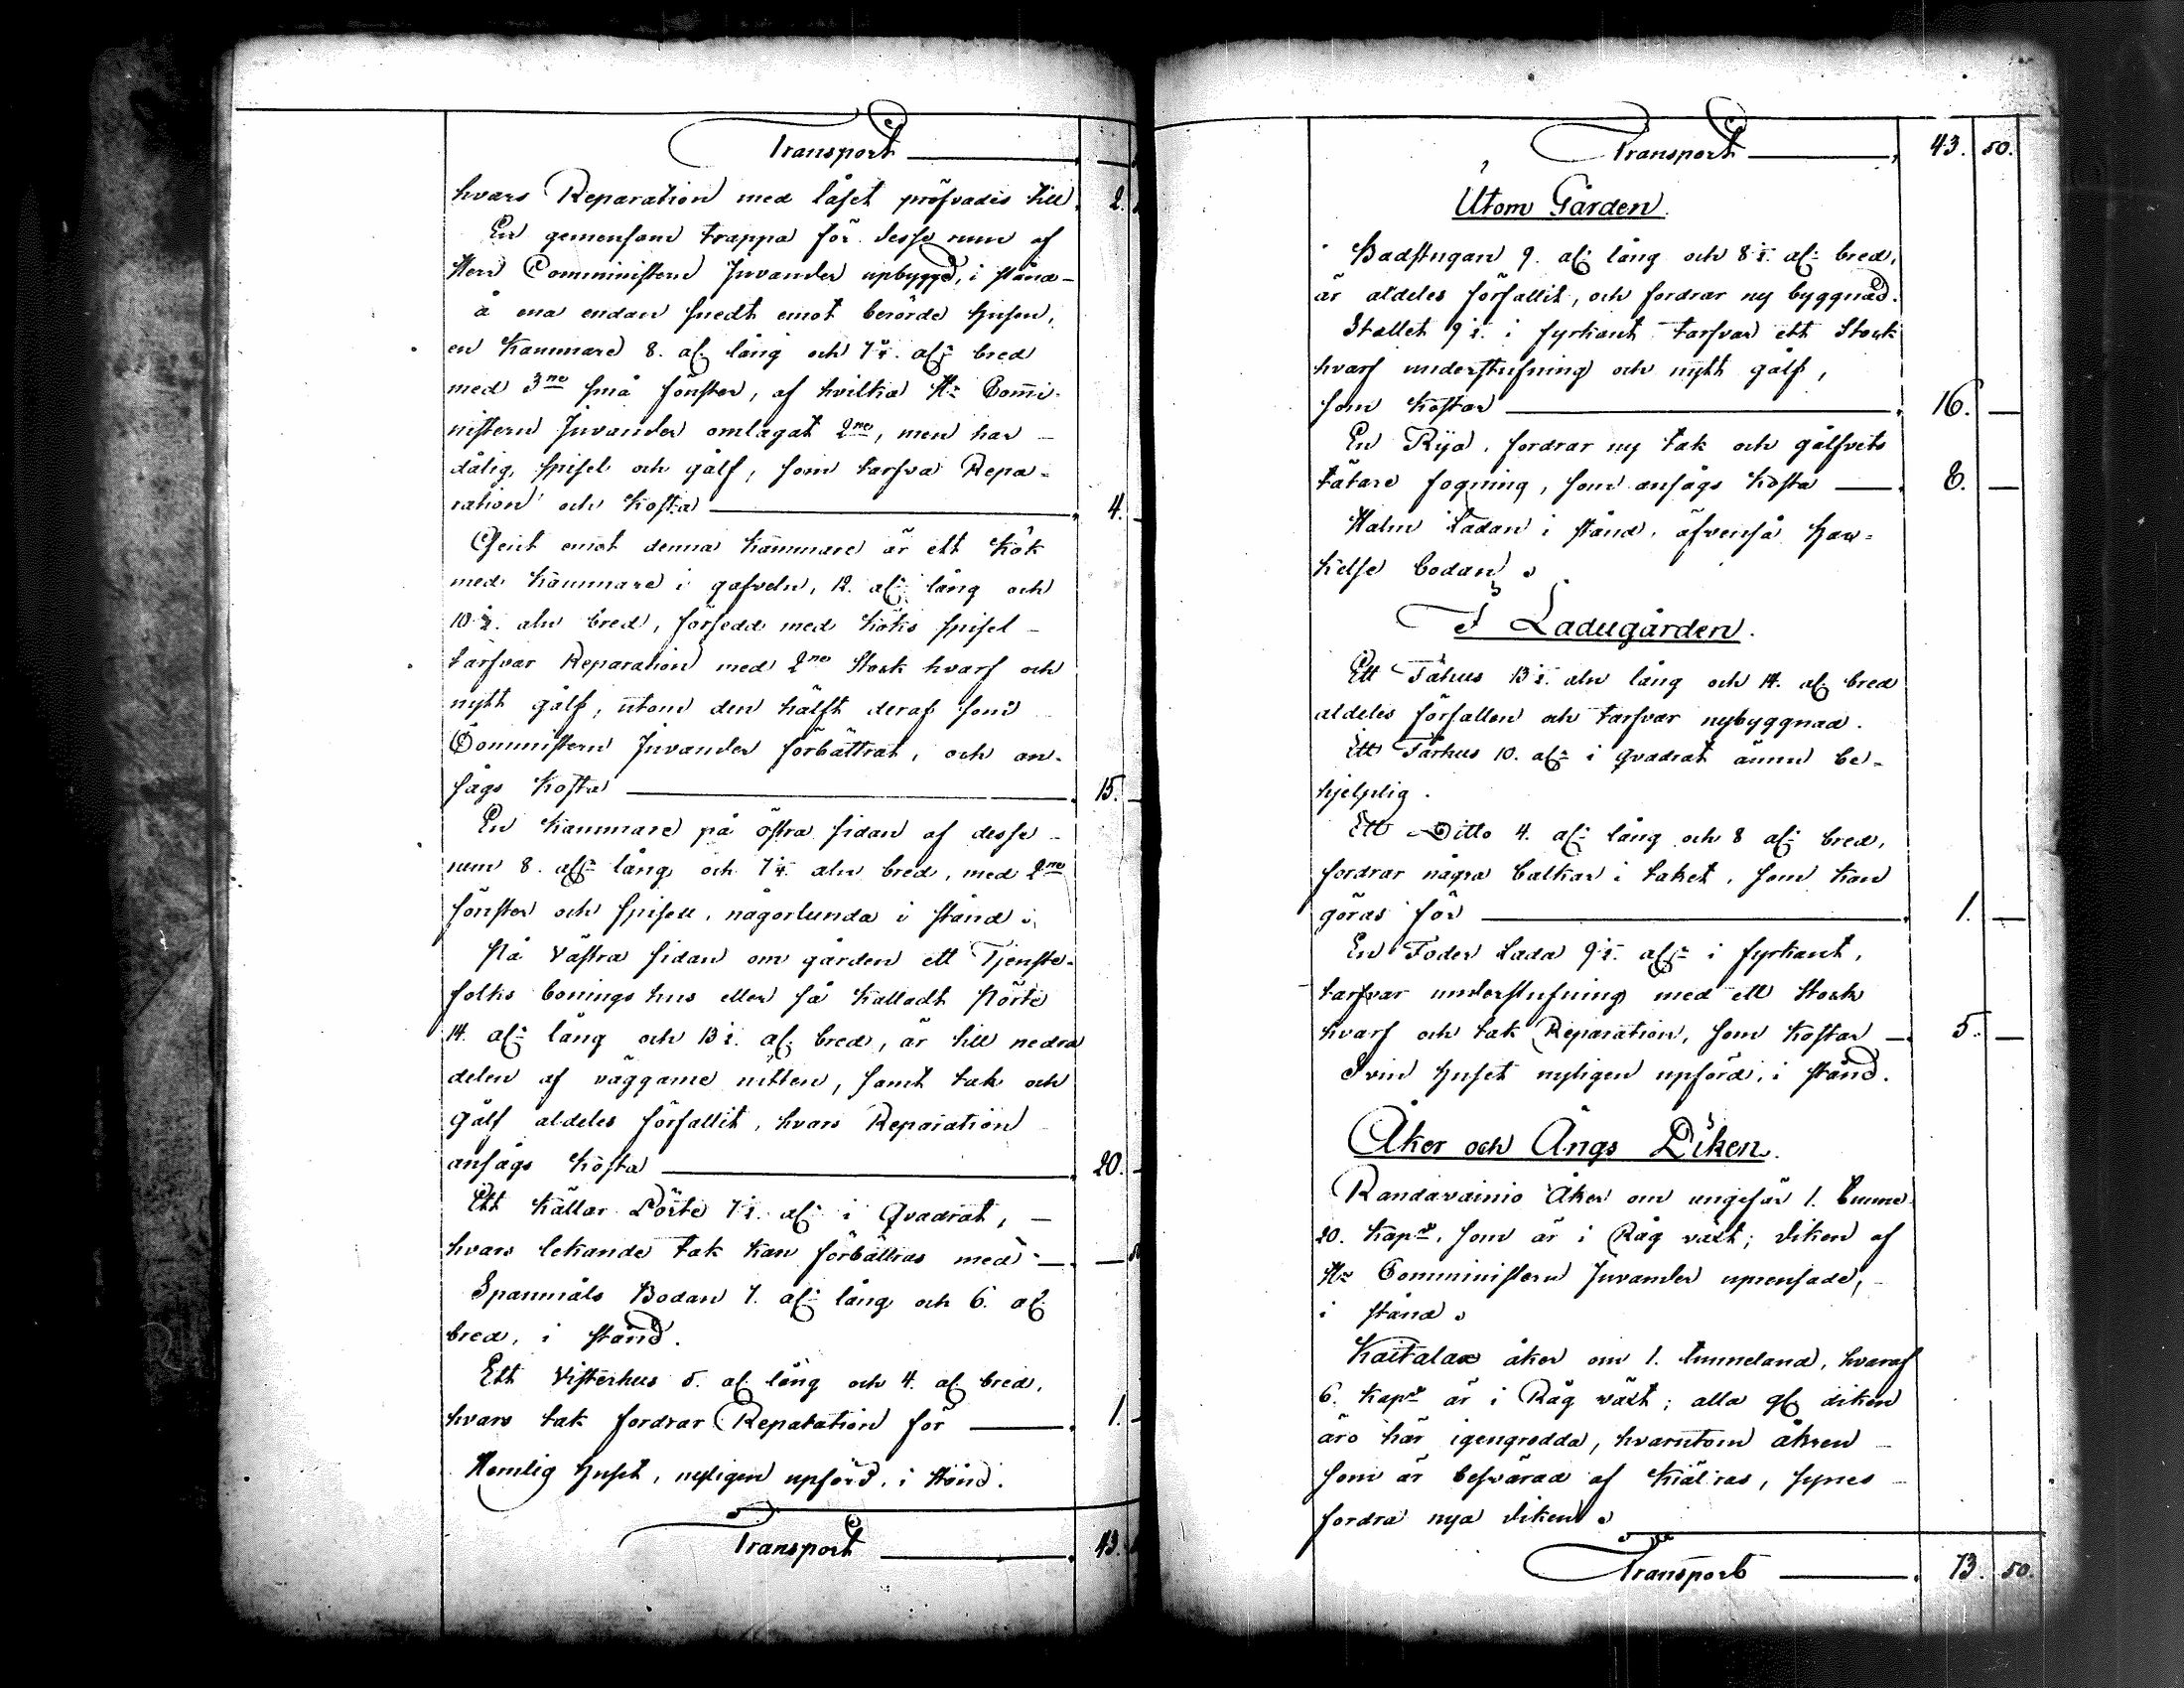 Transport
hvars Reparation med låset pröfvades till 2.
En gemensam trappa för desse rum af
Herr Comministern Juvander upbyggd, i stånd
å ena endan snedt emot berörde husen,
en Kammare 8. al: lång och 7½. al: bred
med 3ne små fönster, af hvilka Hr Commi-
nistern Juvander omlagat 2ne, men har
dålig, spisel och gålf, som tarfva Repa-
ration och Kosta 4.
Gent emot denna Kammare är ett Kök
med Kammare i gafveln, 12. al: lång och
10½. aln bred, försedd med köks spisel
tarfvar Reparation med 2ne Stock hvarf och
nytt gålf, utom den hälft deraf som
Comministern Juvander förbättrat, och an-
sågs Kosta 15.
En Kammare på östra sidan af desse
rum 8. al: lång och 7¼. aln bred, med 2ne
fönster och spisell, någorlunda i stånd.
På Västra sidan om gården ett Tjenste-
folks bonings hus eller så kalladt Pörte
14. al: lång och 13½. al: bred, är till nedra
delen af väggarne rutten, samt tak och
Gålf aldeles förfallit, hvars Reparation
ansågs Kosta 20.
Ett Källar Pörte 7½. al: i Qvadrat,
hvars lekande tak kan förbättras med
Spanmåls Bodan 7. al: lång och 6. al:
bred, i stånd.
Ett Visterhus 5. al: lång och 4. al: bred,
hvars tak fordrar Reparation för 1.
Hemlig huset, nyligen upförd, i stånd.
Transport 43.
Transport 43. 50.
Utom Gården.
Badstugan 9. al: lång och 8½. al: bred,
är aldeles förfallit, och fordrar ny byggnad.
Stallet 9½. i fyrkant tarfvar ett Stock
hvarf understufning och nytt gålf,
som Kostar 16. —
En Rya, fordrar ny tak och gålfvets
tätare fogning, som ansågs Kosta 8. —
Halm Ladan i stånd, äfvenså
bodan.
I Ladugården.
Ett Fähus 13½. aln lång och 14. al: bred
aldeles förfallen och tarfvar nybyggnad.
Ett Fårhus 10. al: i Qvadrat ännu be-
hjelplig.
Ett Ditto 4. al: lång och 8 al: bred,
fordrar några balkar i taket, som kan
göras för 1. —
En Foder Lada 9½. al: i fyrkant,
tarfvar understufning med ett Stock
hvarf och tak Reparation, som Kostar 5. —
Svin huset nyligen upförd, i stånd.
Åker och Ängs Diken.
Randavainio Åker om ungefär 1. tunne
20. Kapr, som är i Råg växt; diken af
Hr Comministern Juvander uprensade,
i stånd.
Kaitalax åker om 1. tunneland, hvaraf
6. Kapr är i Råg växt; alla diken
äro här igengrodda, hvarutom åkren
som är besvärad af Kiälras, synes
fordra nya diken.
Transport 73. 50.